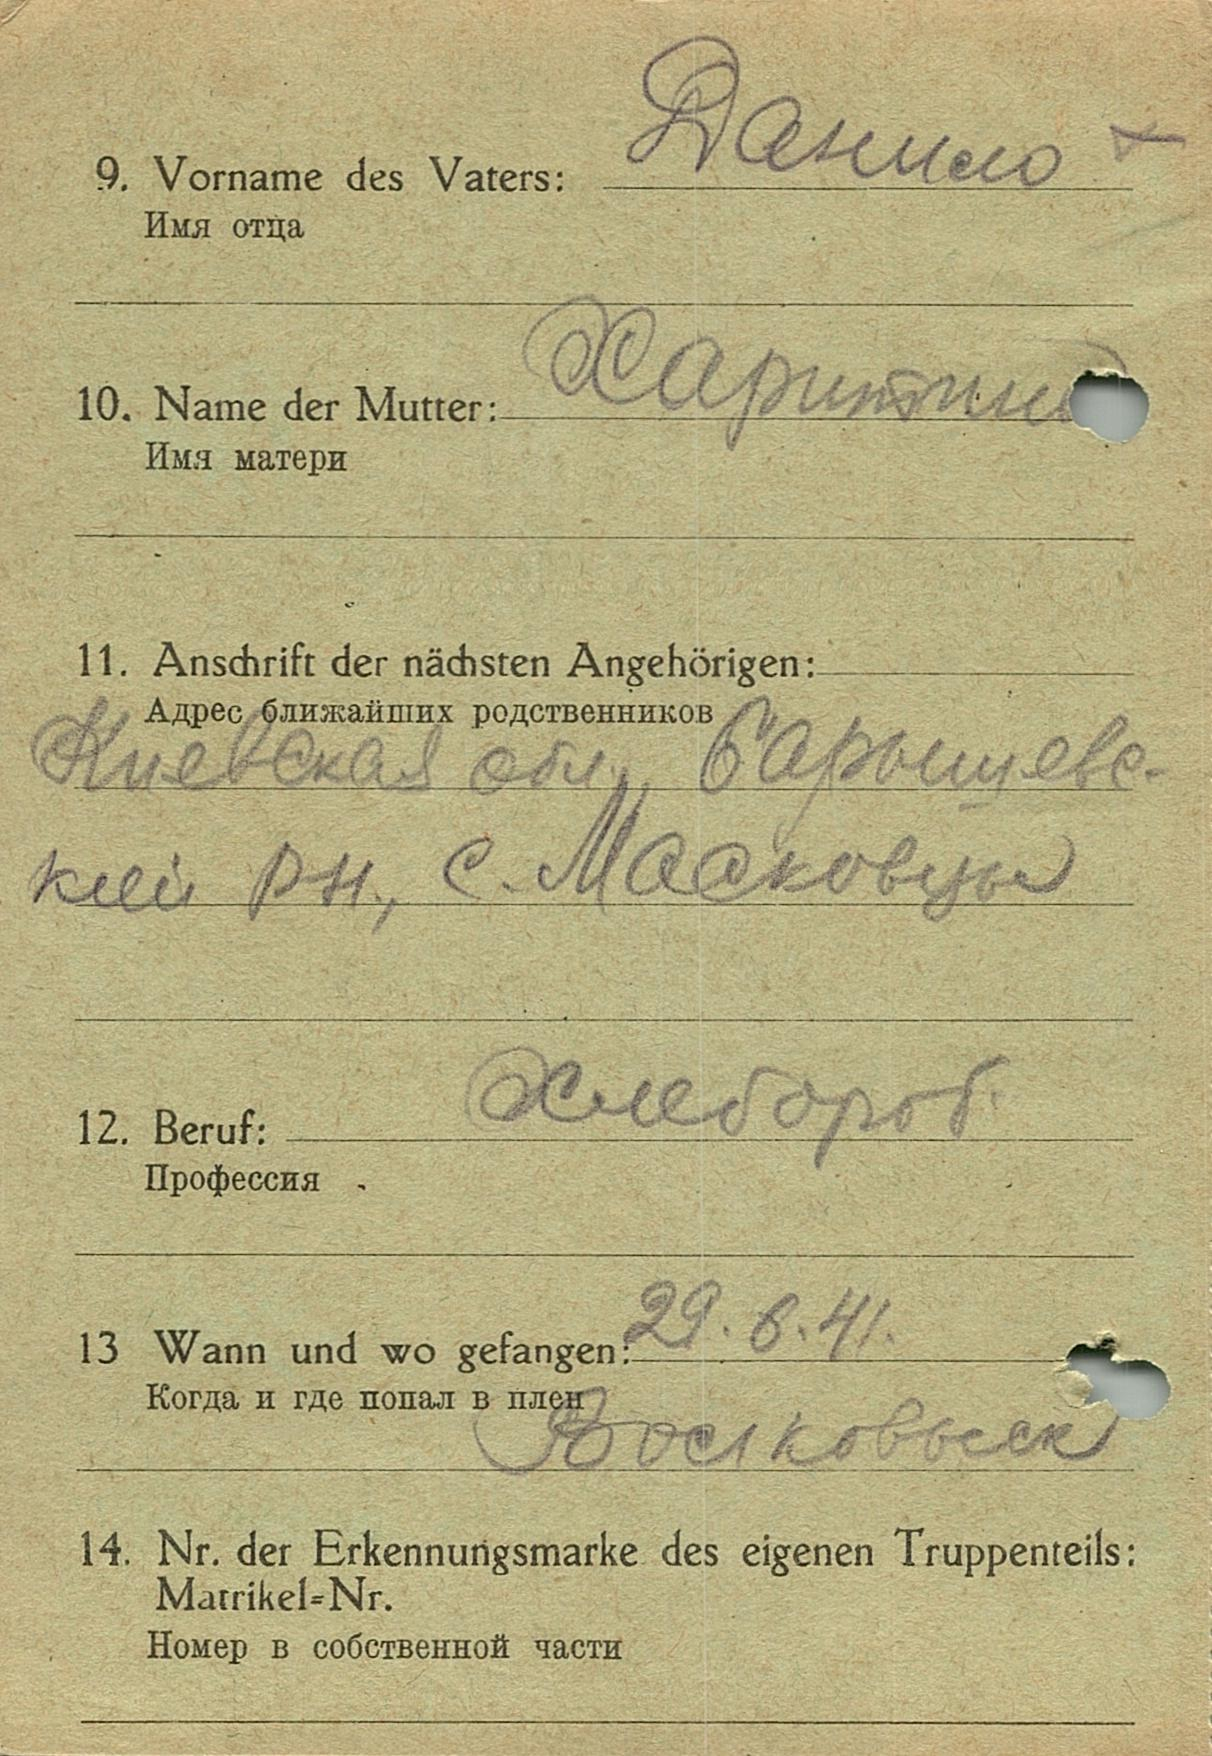 9. Vorname des Vaters: Данило +
Имя отца
10. Name der Mutter: Харитин
Имя матери
11. Anschrift der nächsten Angehörigen:
Адрес ближайших родственников
Киевская обл., Барышевс-
кий рн., с. Масковцы
12. Beruf: Хлебороб.
Профессия
13 Wann und wo gefangen: 29.6.41.
Когда и где попал в плен
Волковыск
14. Nr. der Erkennungsmarke des eigenen Truppenteils:
Matrikel=Nr.
Номер в собственной части